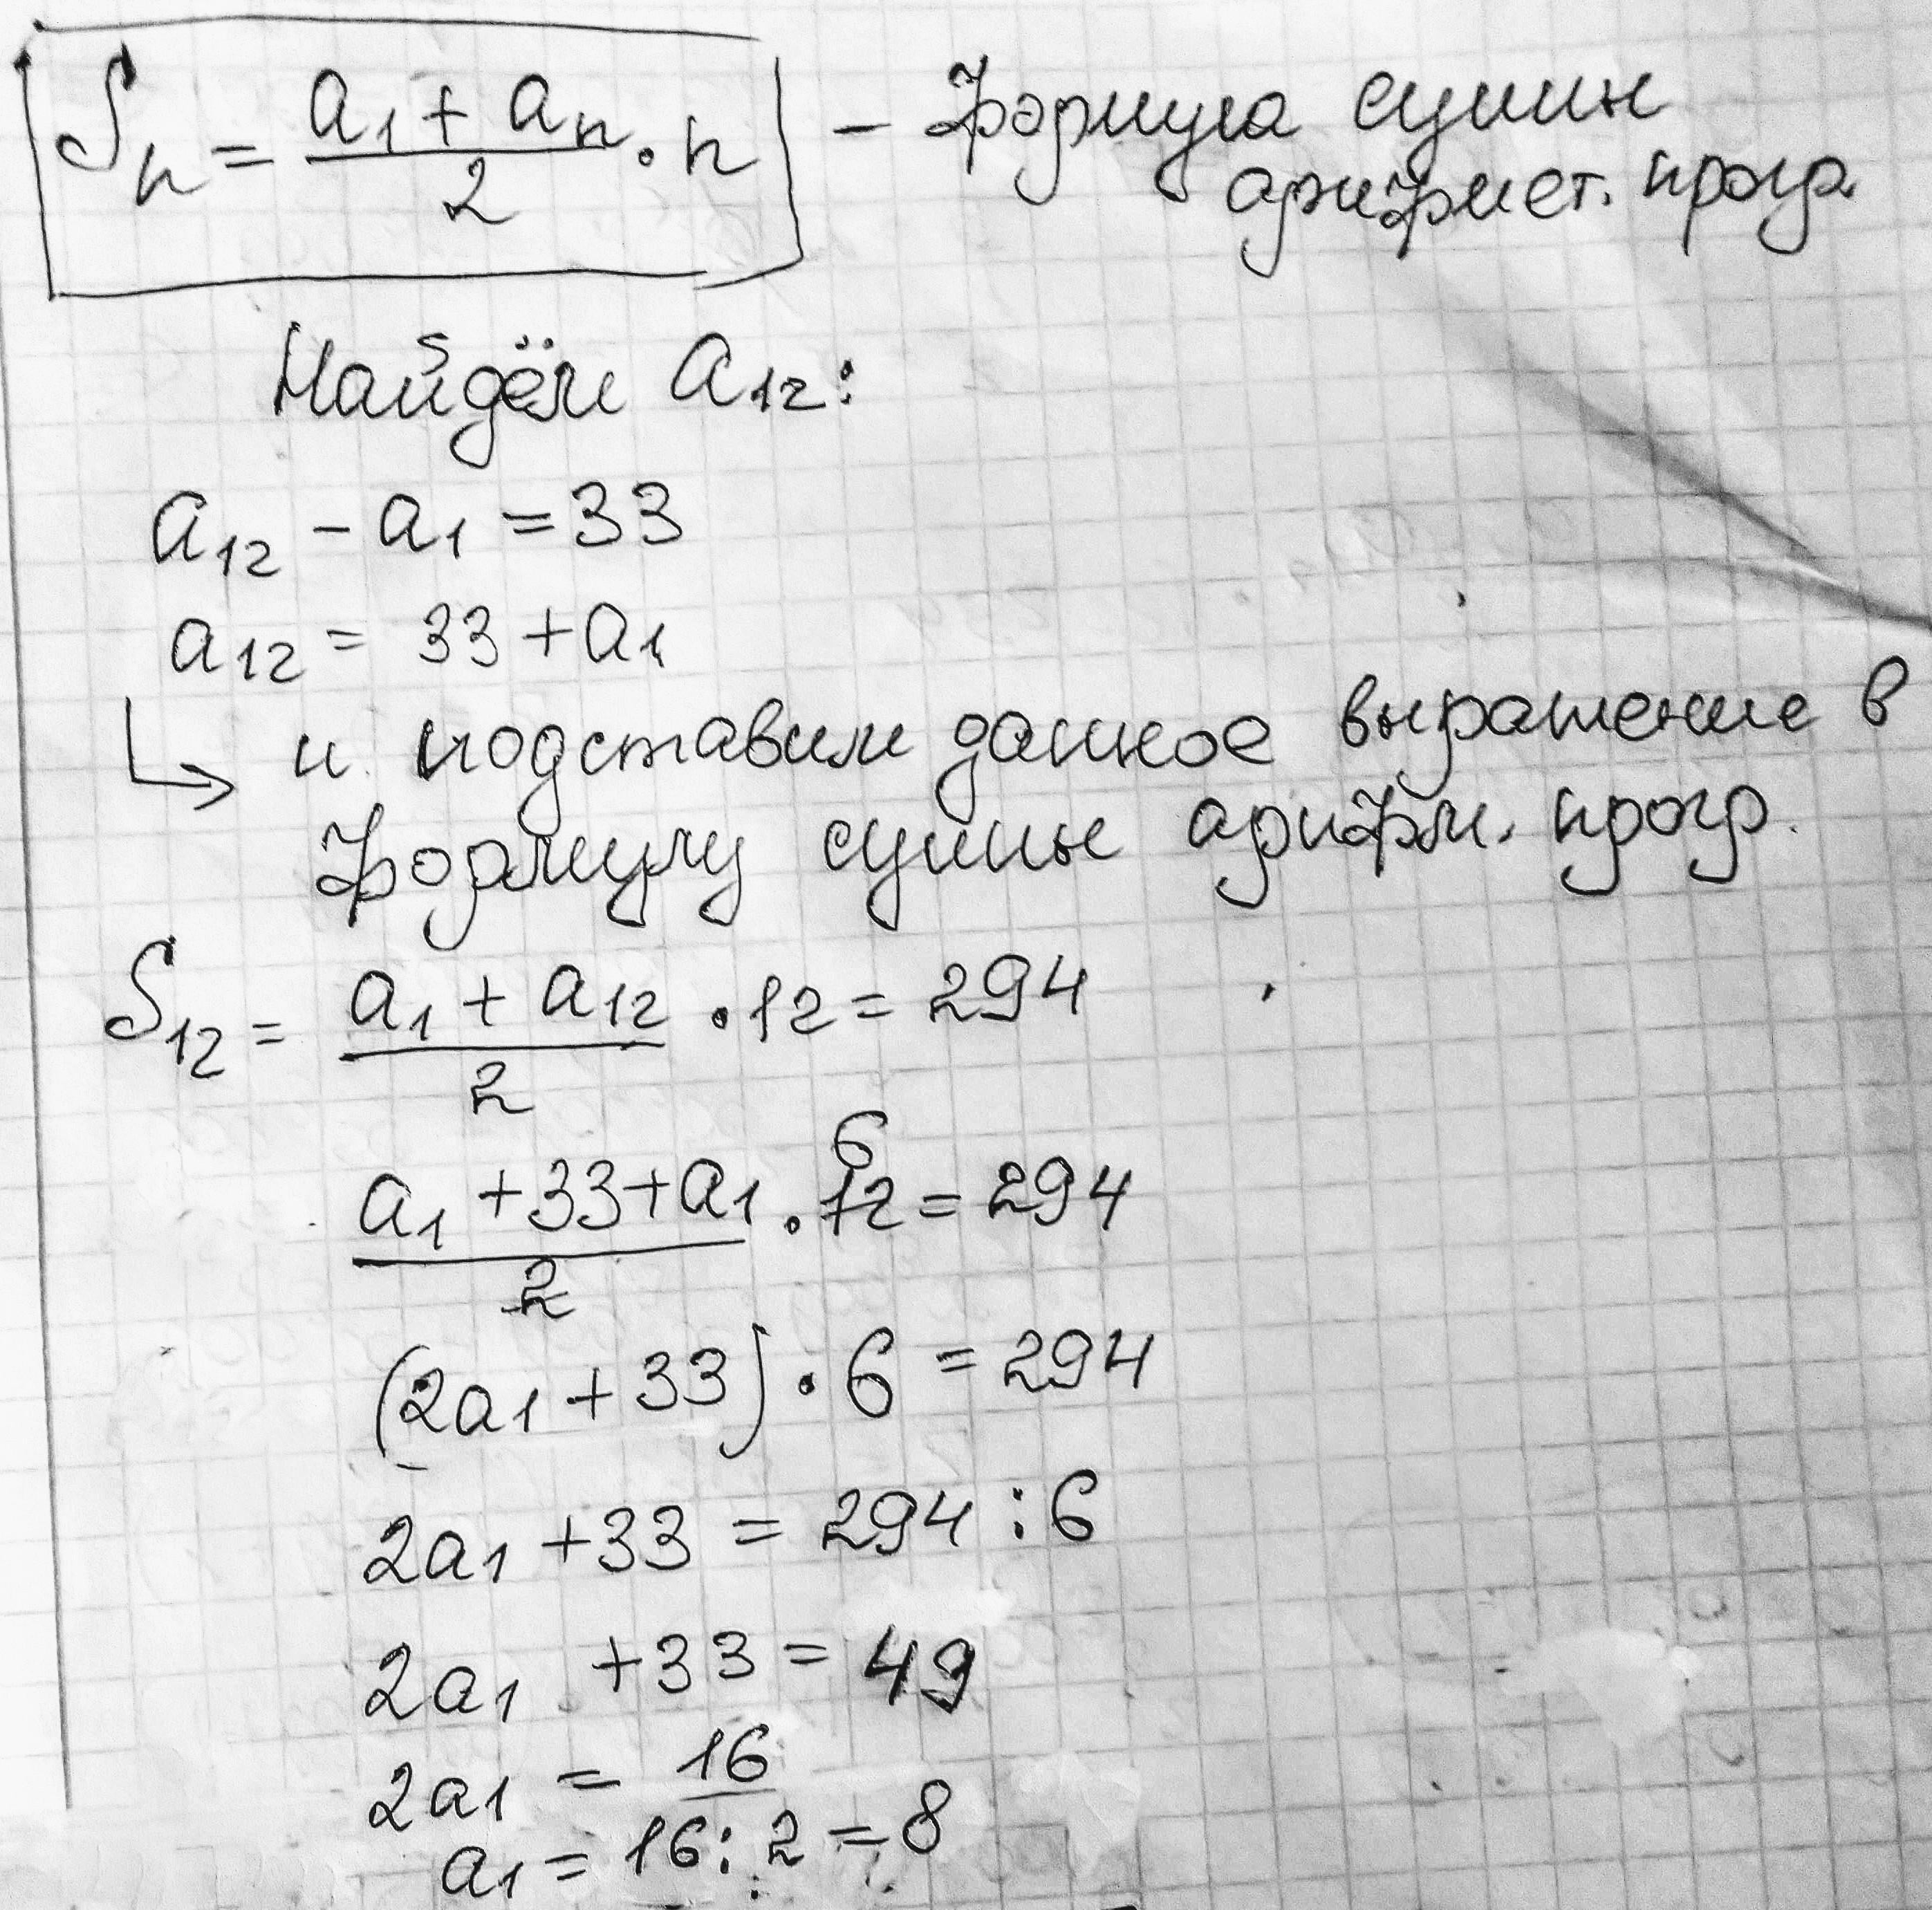 Sₙ = (a₁ + aₙ)/2 · n — Формула суммы
арифмет. прогр.
Найдём a₁₂:
a₁₂ − a₁ = 33
a₁₂ = 33 + a₁
↳ и подставим данное выражение в
формулу суммы арифм. прогр.
S₁₂ = (a₁ + a₁₂)/2 · 12 = 294
6
(a₁ + 33 + a₁)/2 · 12 = 294
(2a₁ + 33) · 6 = 294
2a₁ + 33 = 294 : 6
2a₁ + 33 = 49
2a₁ = 16
a₁ = 16 : 2 = 8